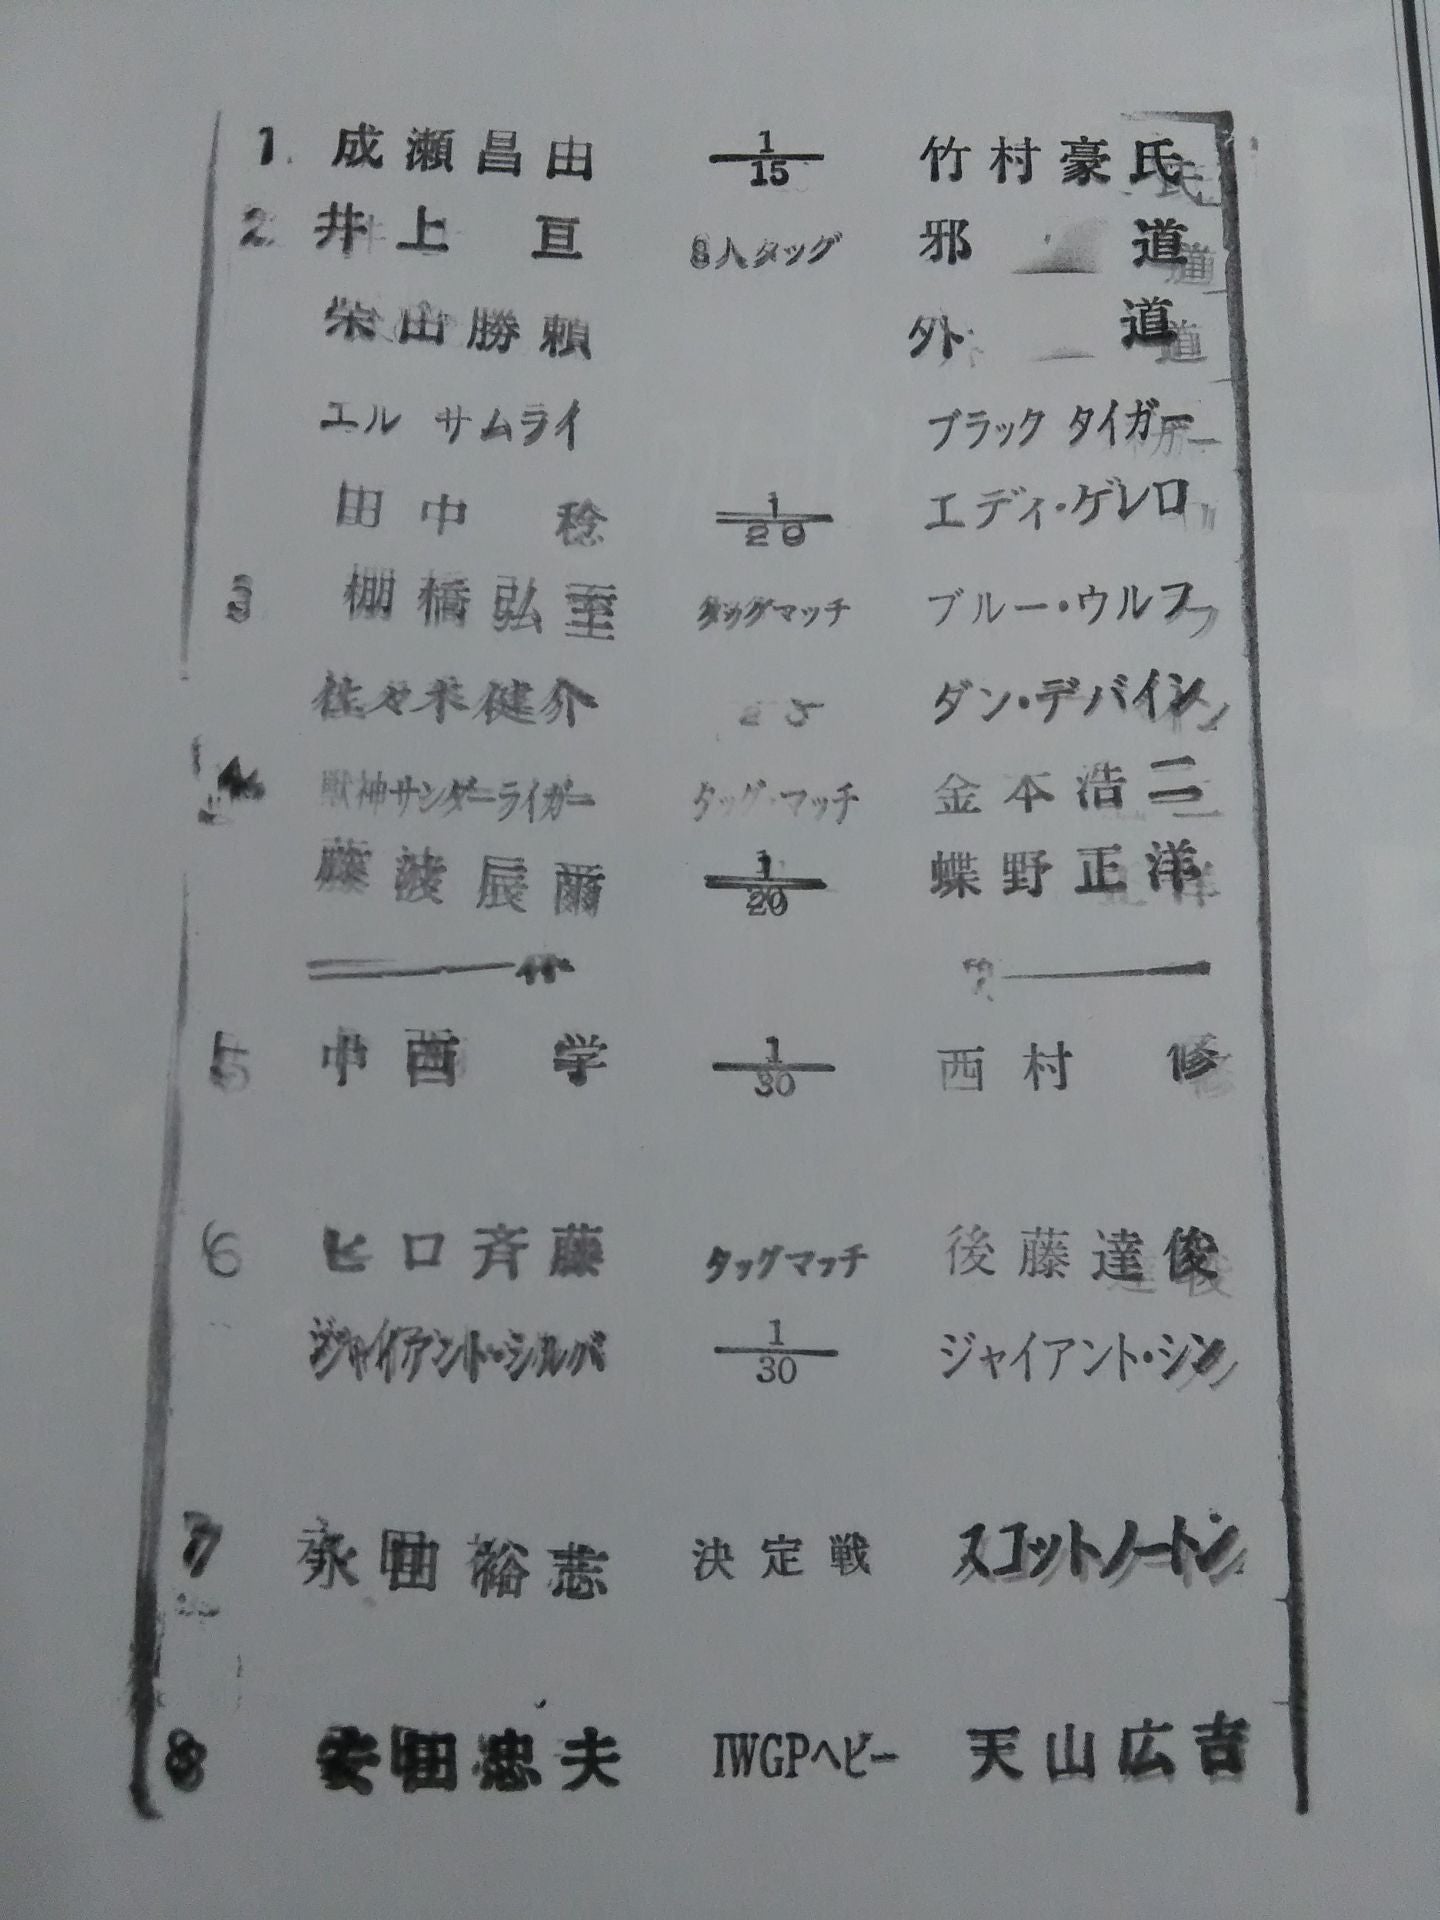 1. 成瀬昌由 1/15 竹村豪氏
2 井上 亘 8人タッグ 邪 道
柴田勝頼 外 道
エル サムライ ブラック タイガー
田中 稔 1/20 エディ・ゲレロ
3 棚橋弘至 タッグマッチ ブルー・ウルフ
佐々木健介 25 ダン・デバイン
4 獣神サンダーライガー タッグ・マッチ 金本浩二
藤波辰爾 1/20 蝶野正洋
5 中西 学 1/30 西村 修
6 ヒロ斉藤 タッグマッチ 後藤達俊
ジャイアント・シルバ 1/30 ジャイアント・シン
7 永田裕志 決定戦 スコットノートン
8 安田忠夫 IWGPヘビー 天山広吉